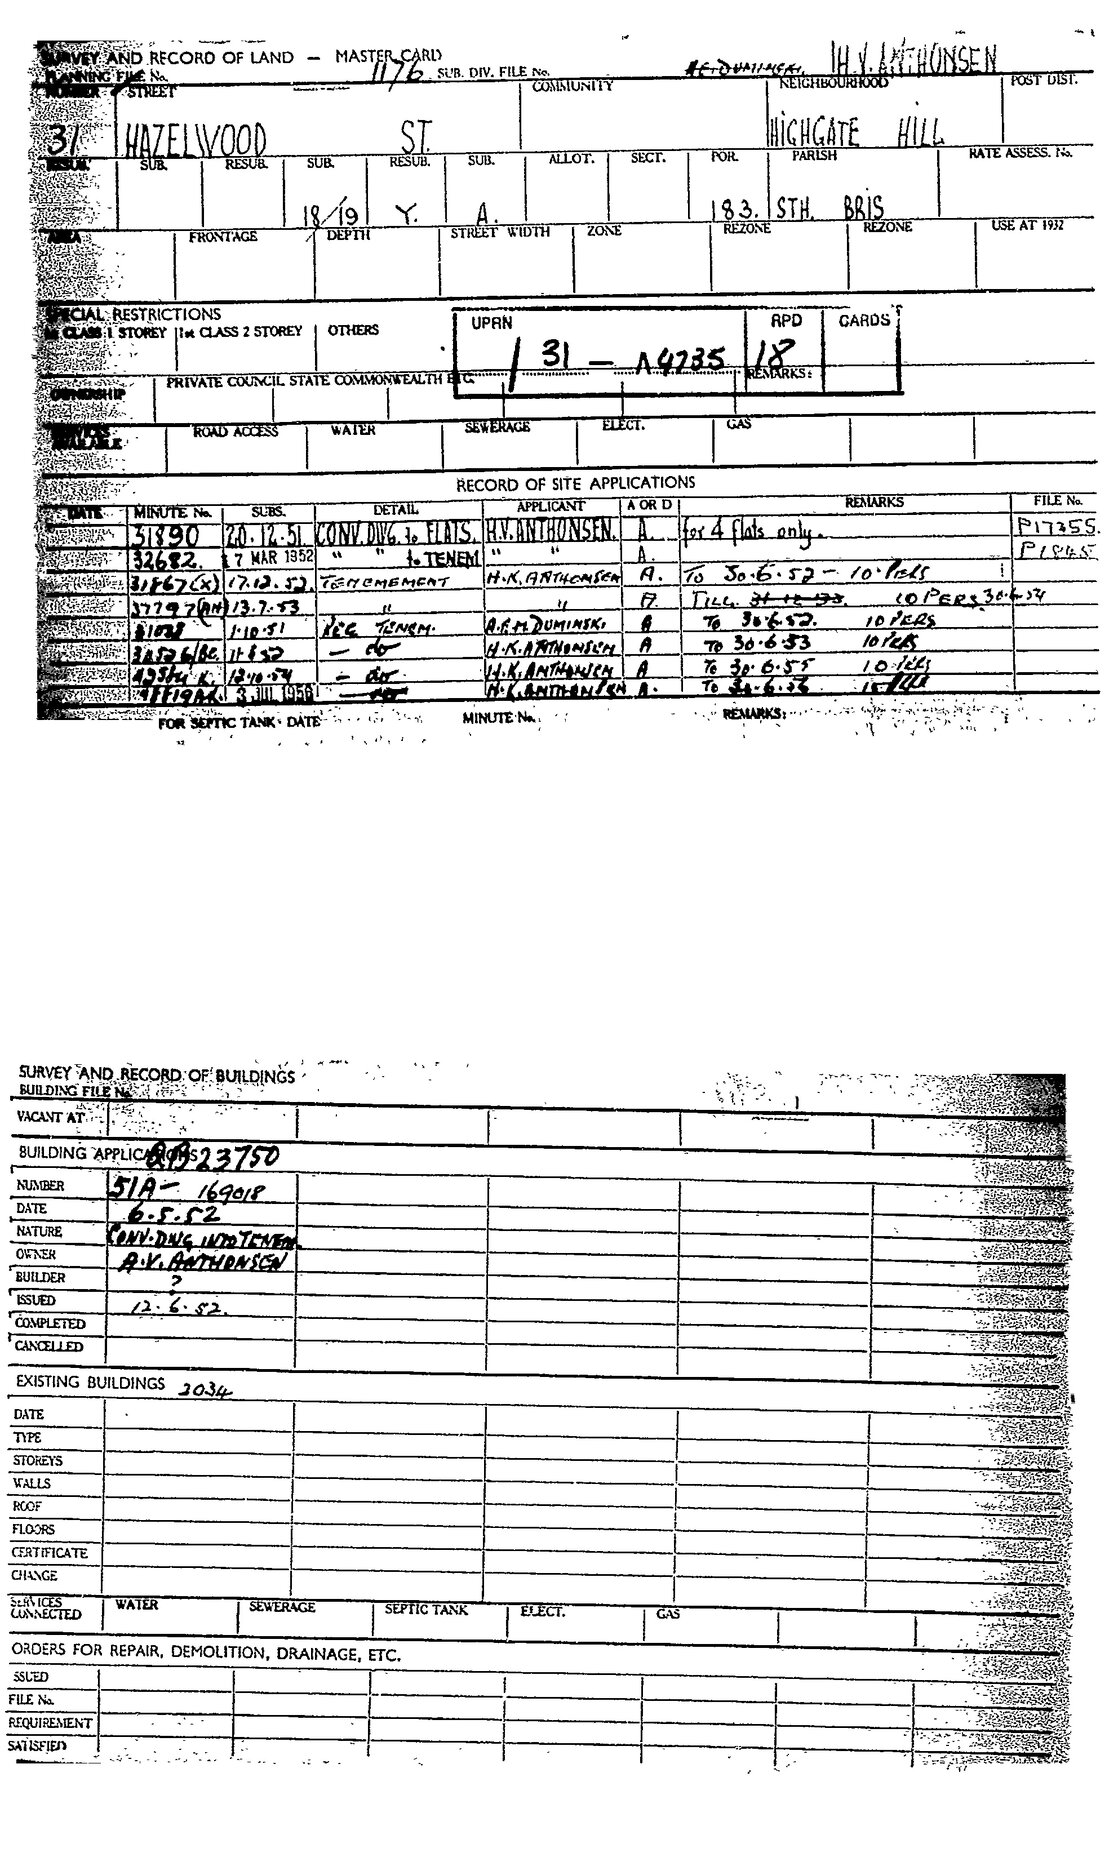 SURVEY AND RECORD OF LAND — MASTER CARD
PLANNING FILE No. 1176 SUB. DIV. FILE No. H.V. ANTHONSEN
NUMBER STREET COMMUNITY NEIGHBOURHOOD POST DIST.
31 HAZELWOOD ST. HIGHGATE HILL
RESUM. SUB. RESUB. SUB. RESUB. SUB. ALLOT. SECT. POR. PARISH RATE ASSESS. No.
18/19 Y. A. 183. STH. BRIS
AREA FRONTAGE DEPTH STREET WIDTH ZONE REZONE REZONE USE AT 1932
SPECIAL RESTRICTIONS
1st CLASS 1 STOREY 1st CLASS 2 STOREY OTHERS
UPRN RPD CARDS
/ 31 — A4735 18
REMARKS:
OWNERSHIP PRIVATE COUNCIL STATE COMMONWEALTH ETC.
SERVICES AVAILABLE ROAD ACCESS WATER SEWERAGE ELECT. GAS
RECORD OF SITE APPLICATIONS
DATE MINUTE No. SUBS. DETAIL APPLICANT A OR D REMARKS FILE No.
31890 20.12.51 CONV. DWG. to FLATS. H.V. ANTHONSEN. A. for 4 flats only. P17355
32682. 17 MAR 1952 " " to TENEM " " A. P1845
31867(X) 17.12.52. TENEMEMENT H.K. ANTHONSEN A. TO 30.6.52 — 10.PERS
37797(AH) 13.7.53 " " A. TILL 31.12.53. 10 PERS 30.6.54
31028 1.10.51 REG TENEM. A.F.M DUMINSKI A To 30.6.52. 10 PERS
11.8.52 — do H.K. ANTHONSEN A To 30.6.53 10 PERS
12.10.54 — do H.K. ANTHONSEN A To 30.6.55 10 PERS
3 JUL 1956 — do H.K. ANTHONSEN A. To 30.6.56
FOR SEPTIC TANK: DATE MINUTE No. REMARKS:
SURVEY AND RECORD OF BUILDINGS
BUILDING FILE No.
VACANT AT
BUILDING APPLICATIONS 23750
NUMBER 51A — 169018
DATE 6.5.52
NATURE CONV. DWG INTO TENEM.
OWNER A.V. ANTHONSEN
BUILDER ?
ISSUED 12.6.52.
COMPLETED
CANCELLED
EXISTING BUILDINGS 2034
DATE
TYPE
STOREYS
WALLS
ROOF
FLOORS
CERTIFICATE
CHANGE
SERVICES CONNECTED WATER SEWERAGE SEPTIC TANK ELECT. GAS
ORDERS FOR REPAIR, DEMOLITION, DRAINAGE, ETC.
ISSUED
FILE No.
REQUIREMENT
SATISFIED